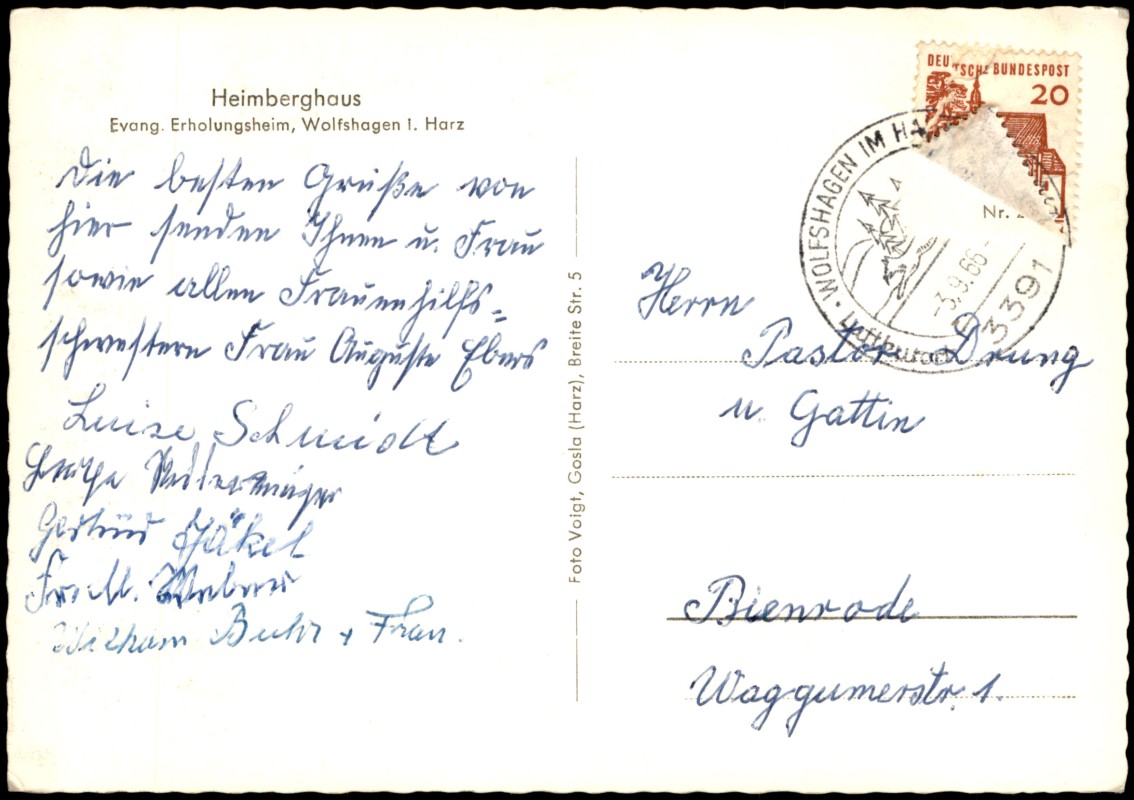 Heimberghaus
Evang. Erholungsheim, Wolfshagen i. Harz
Die besten Grüße von
hier senden Ihnen u. Frau
sowie allen Frauenhilfs-
schwestern Frau Auguste Ebers
Luise Schmidt
Gertrud Jäkel
Weber
Buhr + Frau.
Foto Voigt, Gosla (Harz), Breite Str. 5
DEUTSCHE BUNDESPOST
20
Nr. 2
WOLFSHAGEN IM HA
-3.9.66-
3391
Luftkurort
Herrn
Pastor Drung
u. Gattin
Bienrode
Waggumerstr. 1.